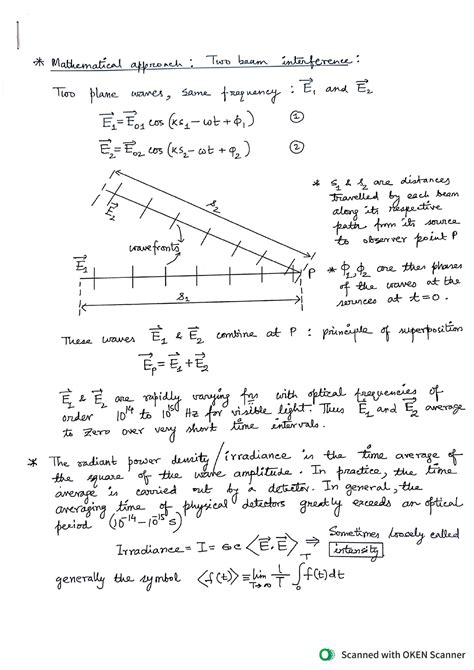 * Mathematical approach: Two beam interference:
Two plane waves, same frequency : E⃗₁ and E⃗₂
E⃗₁ = E⃗₀₁ cos (ks₁ - ωt + φ₁) ①
E⃗₂ = E⃗₀₂ cos (ks₂ - ωt + φ₂) ②
s₂
E⃗₂
wavefronts
E⃗₁
P
s₁
* s₁ & s₂ are distances
travelled by each beam
along its respective
path from its source
to observer point P
* φ₁, φ₂ are the phases
of the waves at the
sources at t=0.
These waves E⃗₁ & E⃗₂ combine at P : principle of superposition
E⃗p = E⃗₁ + E⃗₂
E⃗₁ & E⃗₂ are rapidly varying fns with optical frequencies of
order 10¹⁴ to 10¹⁵ Hz for visible light. Thus E⃗₁ and E⃗₂ average
to zero over very short time intervals.
* The radiant power density / irradiance is the time average of
the square of the wave amplitude. In practice, the time
average is carried out by a detector. In general, the
averaging time of physical detectors greatly exceeds an optical
period (10⁻¹⁴ - 10⁻¹⁵ s)
Irradiance = I = εc ⟨E⃗.E⃗⟩ ⇒ Sometimes loosely called
intensity
generally the symbol ⟨f(t)⟩ ≡ lim T→∞ 1/T ∫₀ᵀ f(t) dt
Scanned with OKEN Scanner